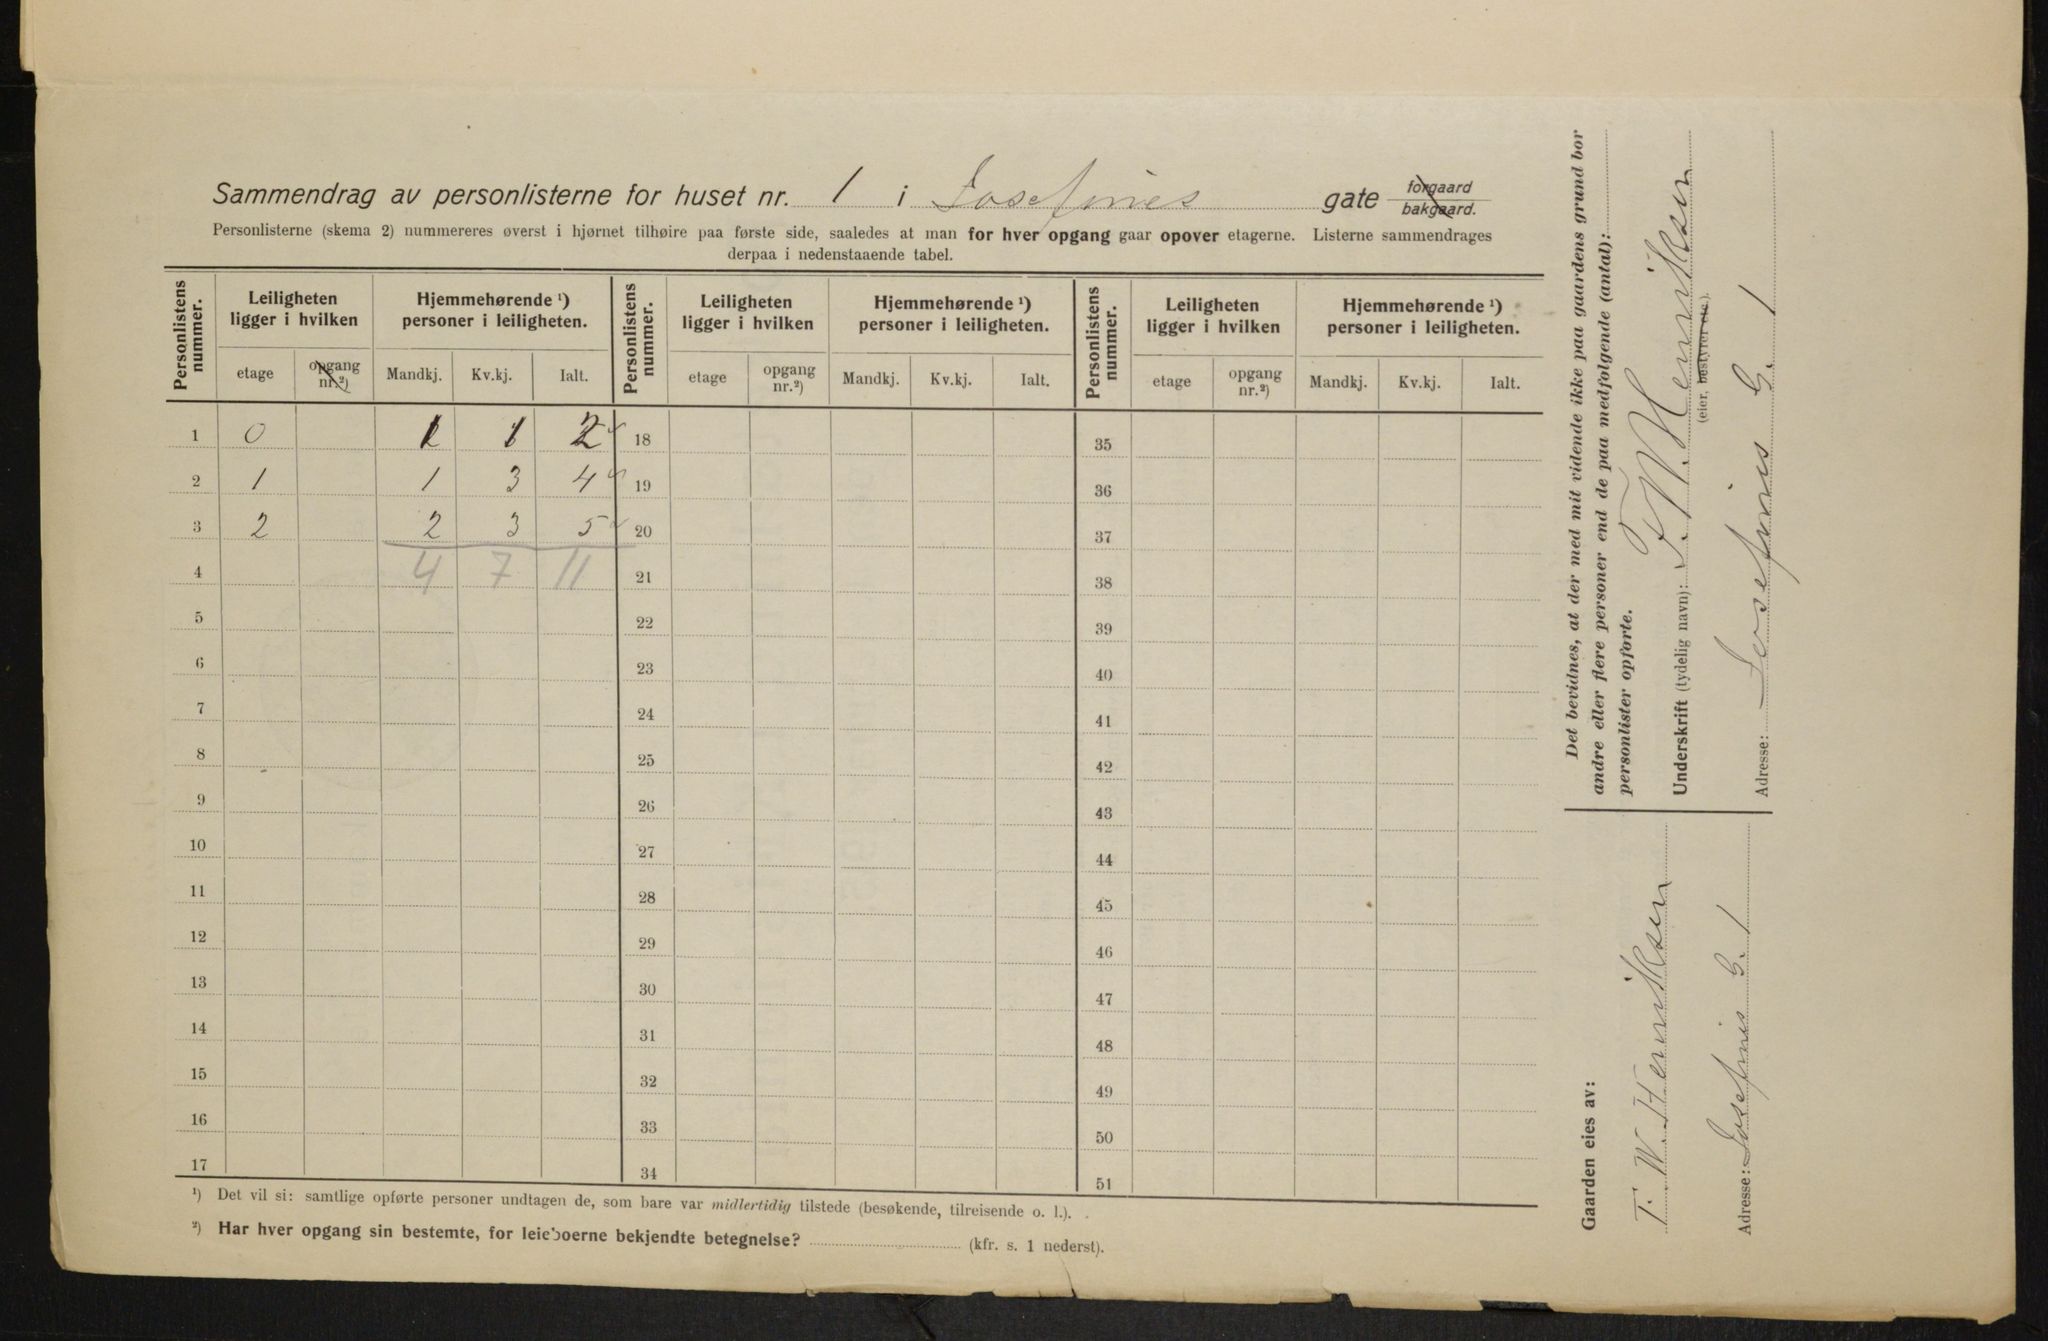 Sammendrag av personlisterne for huset nr. 1 i Josefines gate forgaard bakgaard.
Personlisterne (skema 2) nummereres øverst i hjørnet tilhøire paa første side, saaledes at man for hver opgang gaar opover etagerne. Listerne sammendrages
derpaa i nedenstaaende tabel.
Personlistens nummer. Leiligheten ligger i hvilken Hjemmehørende ¹) personer i leiligheten. Personlistens nummer. Leiligheten ligger i hvilken Hjemmehørende ¹) personer i leiligheten. Personlistens nummer. Leiligheten ligger i hvilken Hjemmehørende ¹) personer i leiligheten.
etage opgang nr.²) Mandkj. Kv.kj. Ialt. etage opgang nr.²) Mandkj. Kv.kj. Ialt. etage opgang nr.²) Mandkj. Kv.kj. Ialt.
1 0 1 1 2 18 35
2 1 1 3 4 19 36
3 2 2 3 5 20 37
4 4 7 11 21 38
5 22 39
6 23 40
7 24 41
8 25 42
9 26 43
10 27 44
11 28 45
12 29 46
13 30 47
14 31 48
15 32 49
16 33 50
17 34 51
¹) Det vil si: samtlige opførte personer undtagen de, som bare var midlertidig tilstede (besøkende, tilreisende o. l.).
²) Har hver opgang sin bestemte, for leieboerne bekjendte betegnelse? (kfr. s. 1 nederst).
Det bevidnes, at der med mit vidende ikke paa gaardens grund bor
andre eller flere personer end de paa medfølgende (antal):
personlister opførte.
Underskrift (tydelig navn): T. W. Henriksen
(eier, bestyrer etc.).
Adresse: Josefines G. 1
Gaarden eies av:
T. W. Henriksen
Adresse: Josefines G. 1